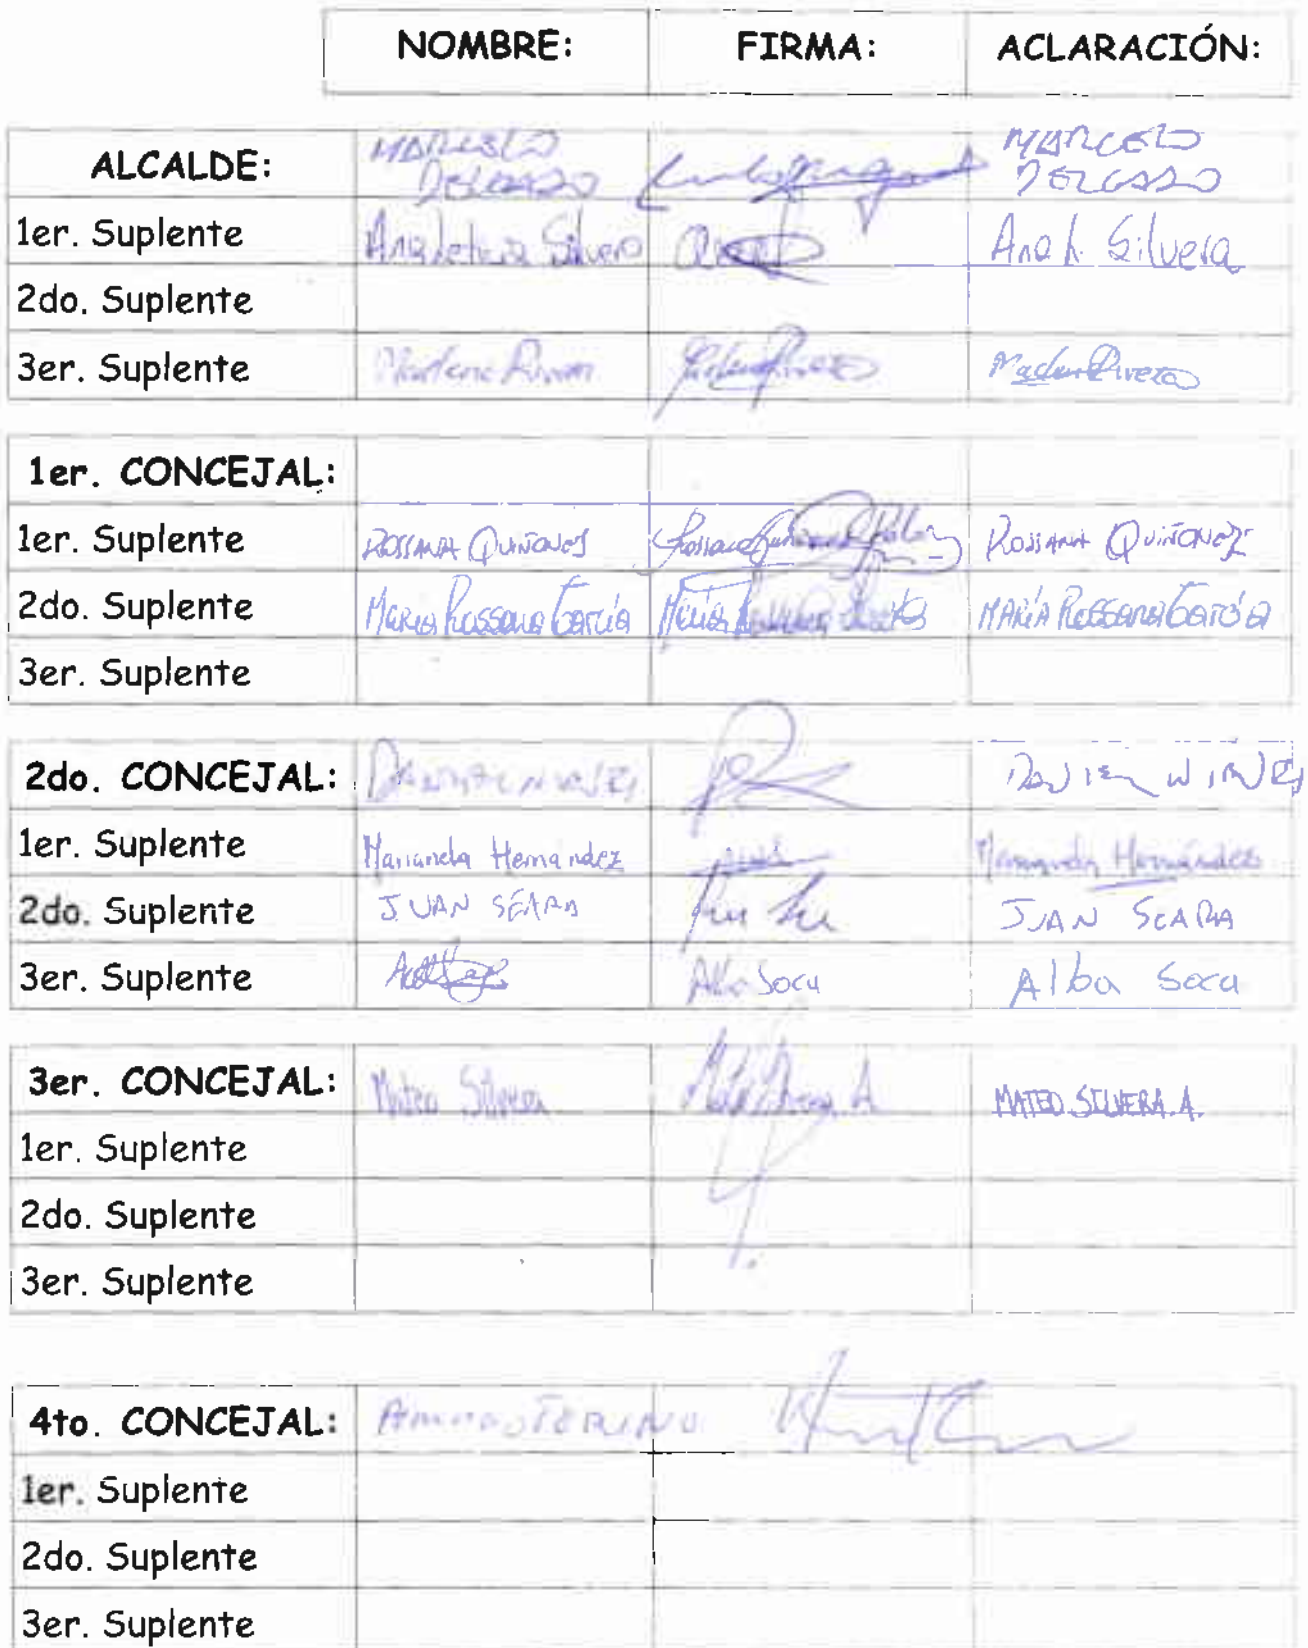 NOMBRE: FIRMA: ACLARACIÓN:
ALCALDE: MARCELO DELGADO MARCELO DELGADO
1er. Suplente Ana Leticia Silvera Ana L. Silvera
2do. Suplente
3er. Suplente Marlene Rivero
1er. CONCEJAL:
1er. Suplente ROSSANA QUIÑONEZ ROSSANA QUIÑONEZ
2do. Suplente María Rossana García María MARÍA ROSSANA GARCÍA
3er. Suplente
2do. CONCEJAL:
1er. Suplente Marianela Hernandez Hernández
2do. Suplente JUAN SCARA JUAN SCARA
3er. Suplente Alba Soca Alba Soca
3er. CONCEJAL: Mateo Silvera MATEO SILVERA A.
1er. Suplente
2do. Suplente
3er. Suplente
4to. CONCEJAL:
1er. Suplente
2do. Suplente
3er. Suplente